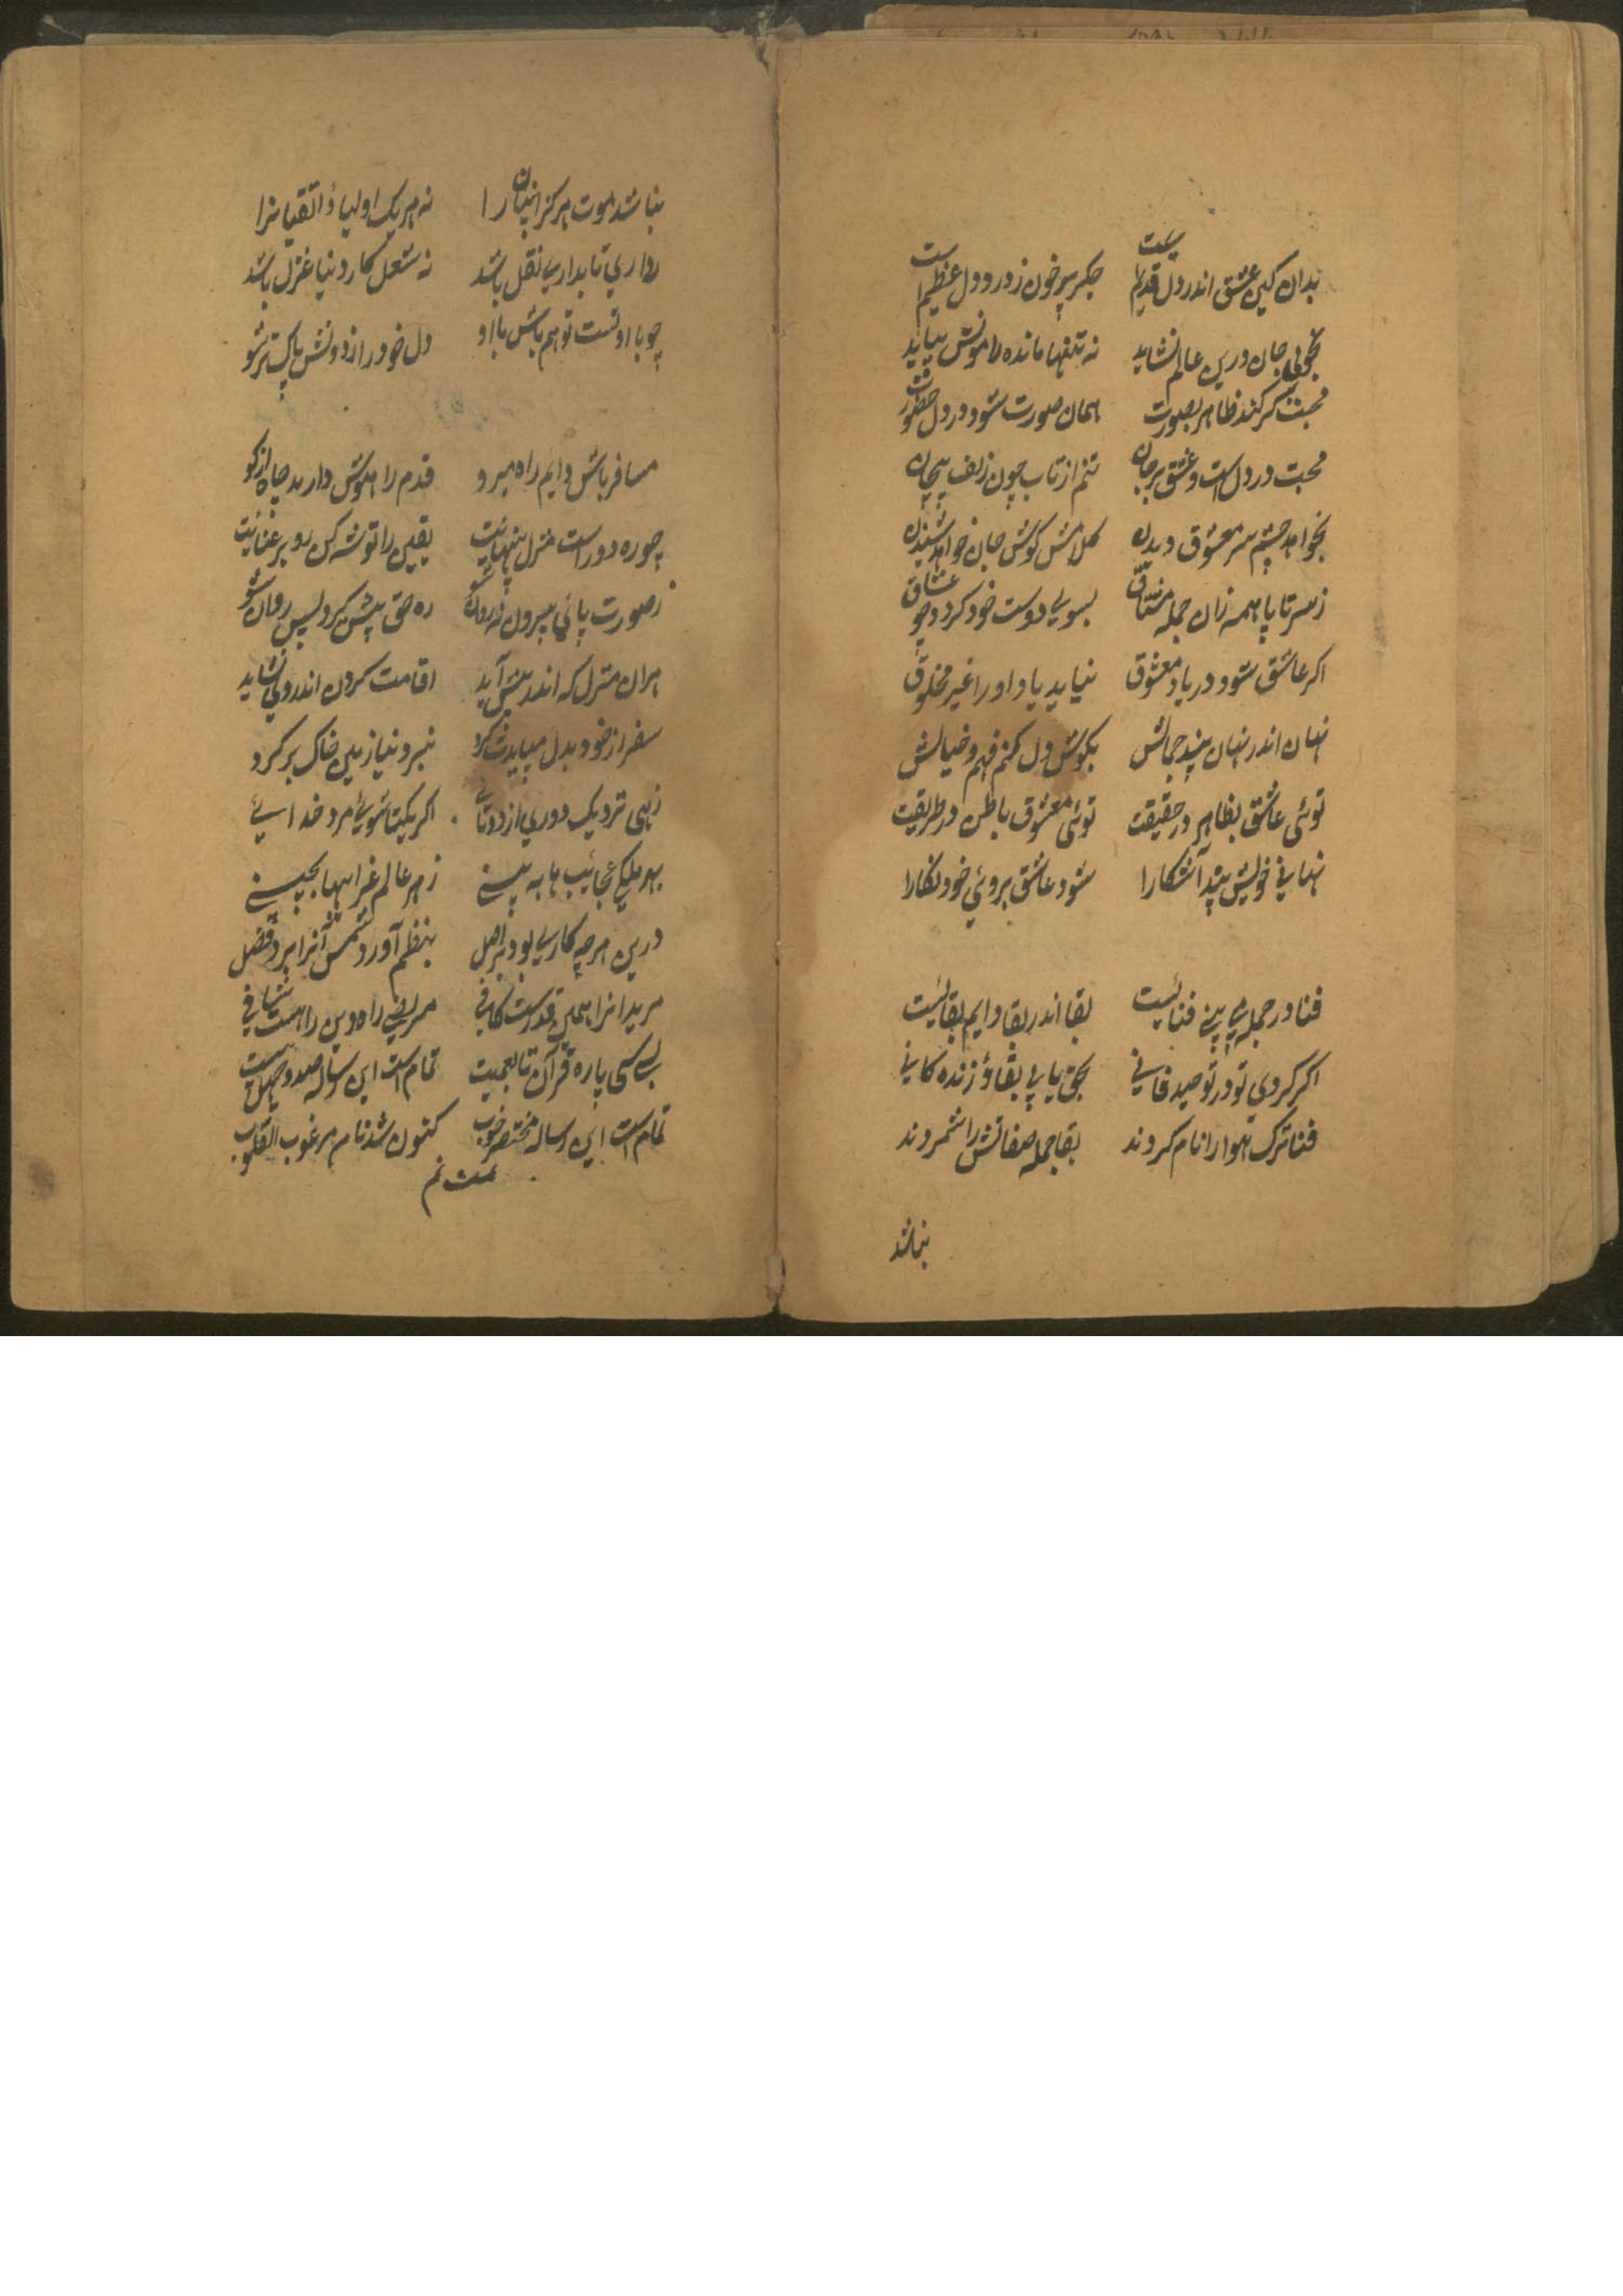 بدان کین عشق اندر دل قدیم است جکر پر خون ز درد دل عظیم است
بجوئی جان درین عالم نشاید نه تنها مانده را مونس بباید
محبت کر کند ظاهر بصورت همان صورت شود در دل حضورت
محبت در دل است و عشق بر جان تنم از تاب چون زلف پیچان
بخواهد چشم سر معشوق دیدن کلامش کوش جان خواهد شنیدن
ز سر تا پا همه زان جمله مشتاق بسوی دوست خود کردد چو عشاق
اکر عاشق شود در یاد معشوق نیاید یاد او را غیر مخلوق
نهان اندر نهان بیند جمالش بکوش دل کنم فهم و خیالش
توئی عاشق بظاهر در حقیقت توئی معشوق باطن در طریقت
نهانی خویش بیند آشکارا شود عاشق بروئی خود نکارا
فنا در جمله شی بینی فنائیست بقا اندر بقا دایم بقائیست
اکر کردی تو در توحید فانی بحق یابی بقا و زنده کانی
فنا ترک هوا را نام کردند بقا جمله صفاتش را شمردند
نباشد
نباشد موت هرکز انبیان را نه هر یک اولیاء و اتقیانرا
رواری تا بداری نقل باشد نه شغل کار دنیا غزل باشد
چو با اوتست تو هم باش با او دل خود را ز دونش پاک تر شو
مسافر باش دایم راه میرو قدم را هوش دار بد چاه از کو
چو ره دور است منزل بینهایت یقین را توشه کن رو بر عنایت
ز صورت پائی بیرون نه روان شو ره حق پیش کرد پس روان شو
هران منزل که اندر پیش آید اقامت کردن اندر وی نشاید
سفر از خود بدل میبایدت کرد نبرو نیاز بدین خاک بر کرد
زهی نزدیک دوری از دوتائی اکر یکتا شوی مرد خدائی
بهر ملکی عجائب ها به بینی ز هر عالم غرایبها بچینی
درین هرچه کاری بود بر اصل بنظم آورد شمس آنرا بر فضل
مریدانرا همین قدرست کافی مریض راه دین را هست شافی
بسی پاره قرآن تا بعجیت تمام است این رساله صد و چهل بیت
تمام است این رساله مختصر خوب کنون شد نام مرغوب القلوب
تمت تم